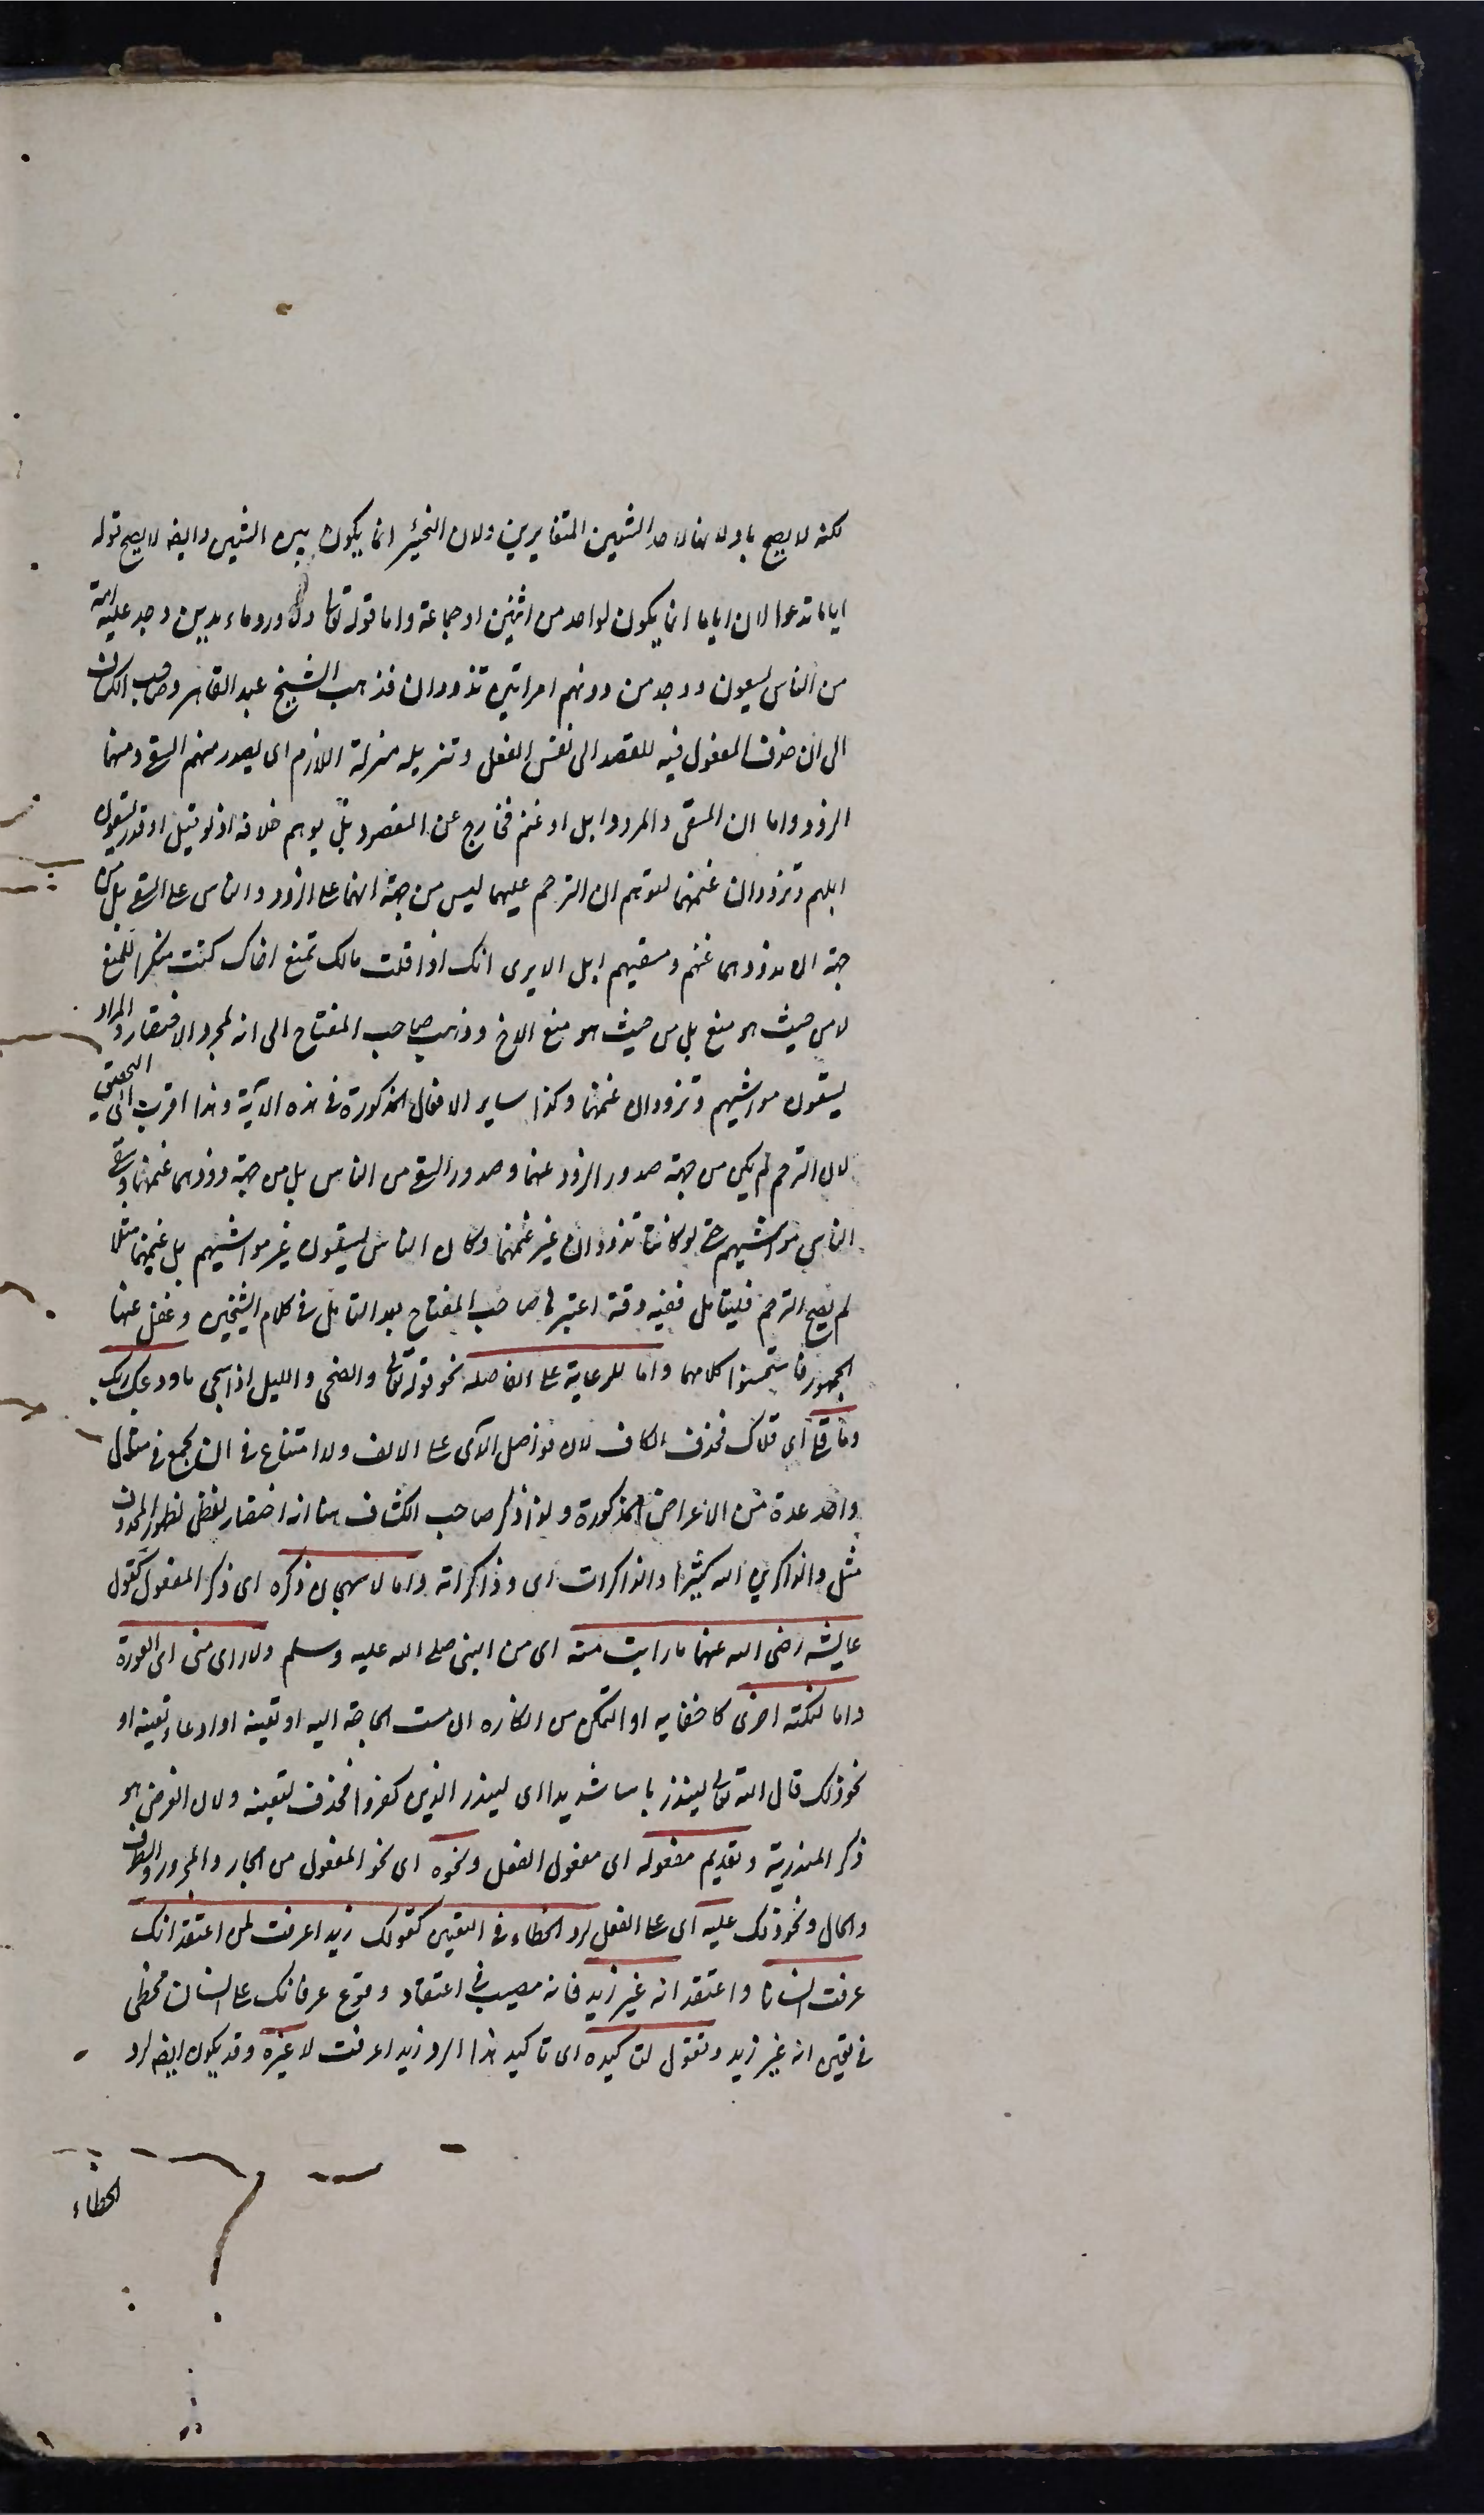 لكنه لا يصح باولا لاحد الشيئين المتغايرين ولان التخيير انما يكون بين الشيئين وايضا لا يصح قوله
اياما تدعوا لان اياما انما يكون لواحد من اثنين او جماعة واما قوله تعالى ولما ورد ماء مدين وجد عليه امة
من الناس يسقون ووجد من دونهم امراتين تذودان فذهب الشيخ عبد القاهر وصاحب الكشاف
الى ان حذف المفعول فيه للقصد الى نفس الفعل وتنزيله منزلة اللازم اى يصدر منهم السقى ومنهما
الذود واما ان المسقى والمذود ابل او غنم فخارج عن المقصود بل يوهم خلافه اذ لو قيل او قدر يسقون
ابلهم وتذودان غنمهما لتوهم ان الترحم عليهما ليس من جهة انهما على الذود والناس على السقى بل من
جهة ان مذودهما غنم ومسقيهم ابل الا يرى انك اذا قلت مالك تمنع اخاك كنت منكرا للمنع
لا من حيث هو منع بل من حيث هو منع الاخ وذهب صاحب المفتاح الى انه لمجرد الاختصار والمراد
يسقون مواشيهم وتذودان غنمهما وكذا ساير الافعال المذكورة فى هذه الآية وهذا اقرب الى التحقيق
لان الترحم لم يكن من جهة صدور الذود عنهما وصدور السقى من الناس بل من جهة ذودهما غنمهما وسقى
الناس مواشيهم حتى لو كانتا تذودان غير غنمهما وكان الناس يسقون غير مواشيهم بل غنمهما مثلا
لم يصح الترحم فليتامل ففيه دقة اعتبرها صاحب المفتاح بعد التامل فى كلام الشيخين وغفل عنها
الجمهور فاستحسنوا كلامهما واما للرعاية على الفاصلة نحو قوله تعالى والضحى والليل اذا سجى ما ودعك ربك
وما قلى اى قلاك فحذف الكاف لان فواصل الآى على الالف ولا امتناع فى ان يجمع فى مثال
واحد عدة من الاغراض المذكورة ولذا ذكر صاحب الكشاف هنا انه اختصار لفظى لظهور المحذوف
مثل والذاكرين الله كثيرا والذاكرات اى وذاكراته واما لاستهجان ذكره اى ذكر المفعول كقول
عايشه رضى الله عنها ما رايت منه اى من النبى صلى الله عليه وسلم ولا راى منى اى العورة
واما لنكتة اخرى كاخفايه او التمكن من انكاره ان مست الحاجة اليه او تعينه او ادعاء تعينه او
نحو ذلك قال الله تعالى لينذر باسا شديدا اى لينذر الذين كفروا فحذف لتعينه ولان الغرض هو
ذكر المنذر به وتقديم مفعوله اى مفعول الفعل ونحوه اى نحو المفعول من الجار والمجرور والظرف
والحال ونحو ذلك عليه اى على الفعل لرد الخطاء فى التعيين كقولك زيدا عرفت لمن اعتقد انك
عرفت انسانا واعتقد انه غير زيد فانه مصيب فى اعتقاد وقوع عرفانك على انسان مخطى
فى تعيين انه غير زيد وتقول لتاكيده اى تاكيد هذا الرد زيدا عرفت لا غيره وقد يكون ايضا لرد
الخطاء